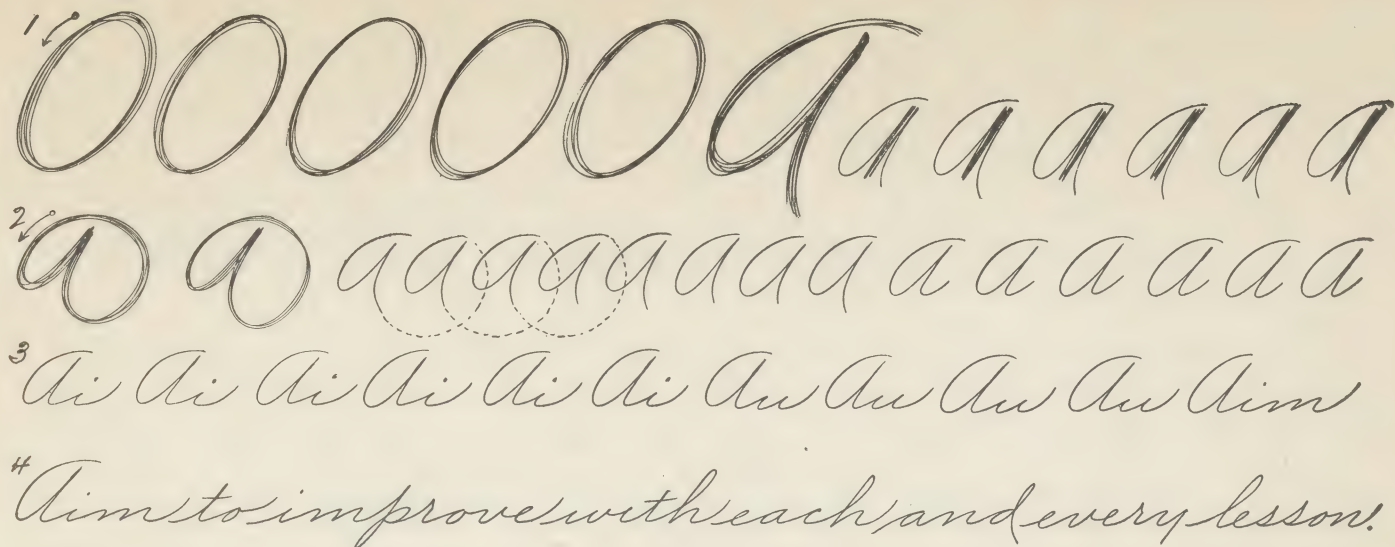 1 O O O O O A A A A A A A
2 A A A A A A A A A A A A A A A A
3 Ai Ai Ai Ai Ai Ai Au Au Au Au Aim
4 Aim to improve with each and every lesson.